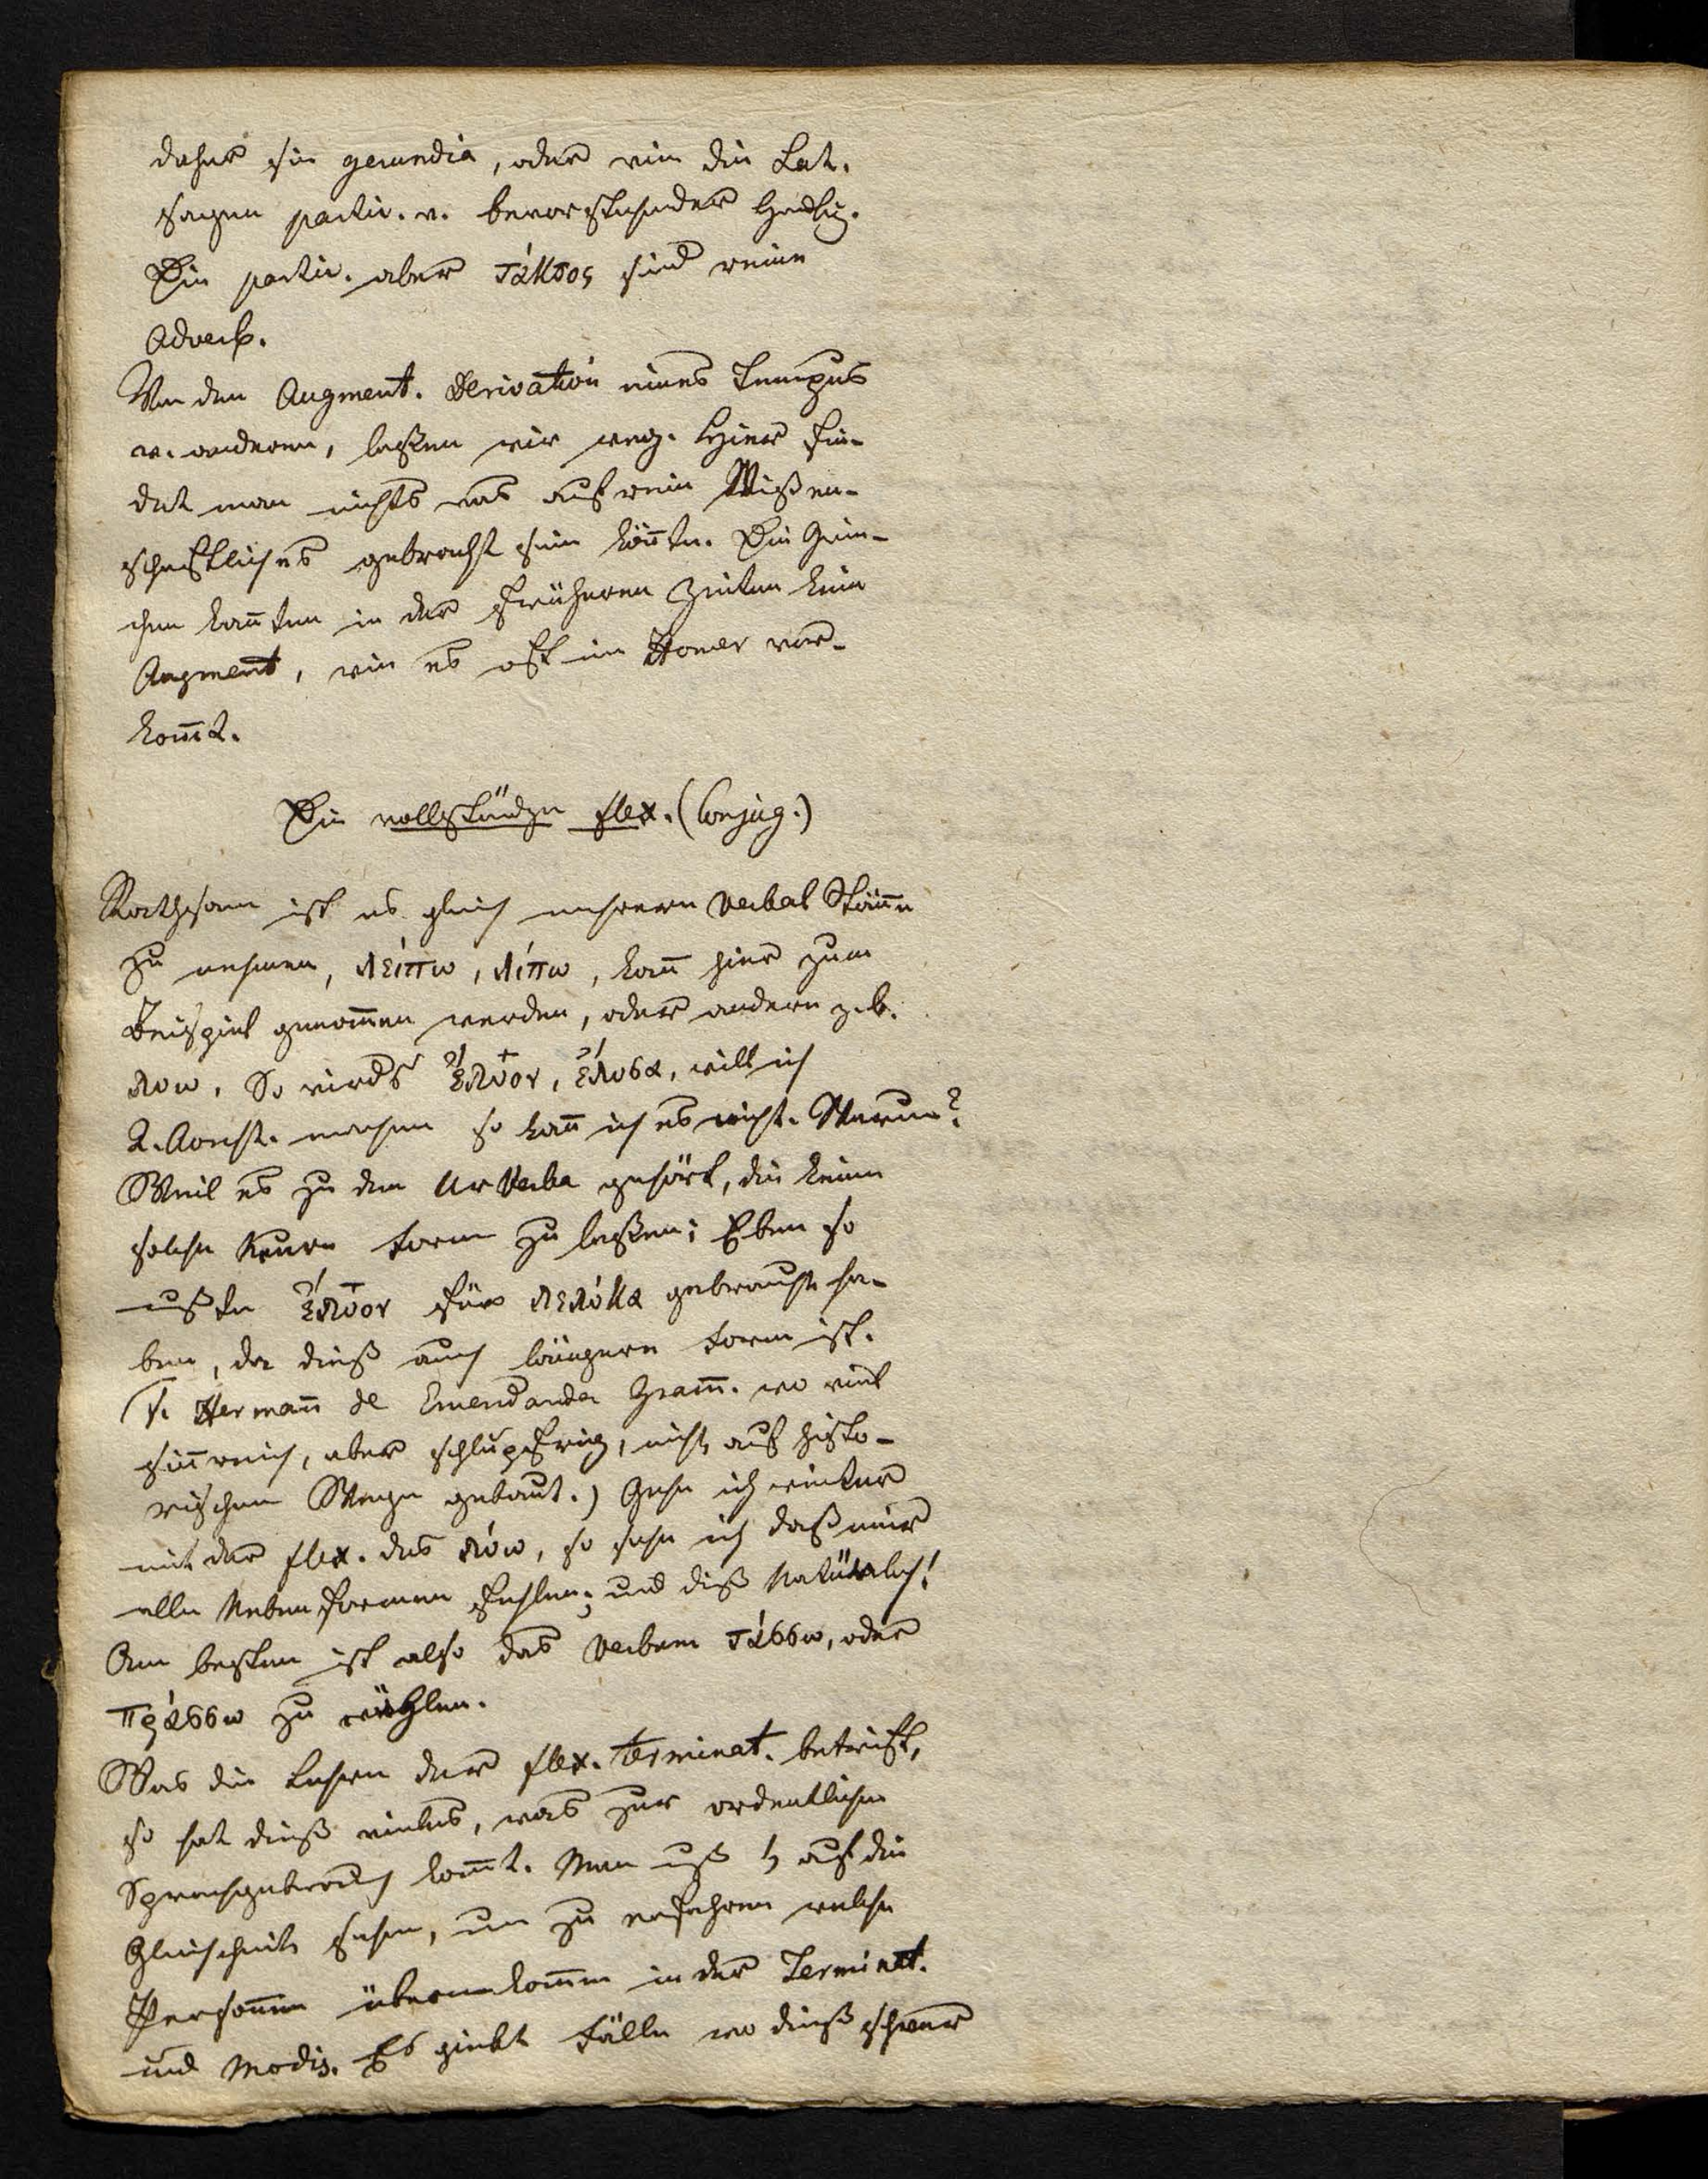 daher sie gerundia, oder wie die Lat.
sagen partic. v. bevorstehender Hndlg.
Die partic. aber τάκτος sind reine
Adverb.
Von den Augment. Derivation eines Tempus
v. anderen, laßen wir weg. Hier fin-
det man nichts was auf rein Wißen-
schaftliches gebracht sein könnte. Die Grie-
chen kannten in der früheren Zeiten kein
Augment, wie es oft im Homer vor-
kom̄t.
Die vollständge flex. (Conjug.)
Rathsam ist es gleich mehrere Verbal Stäm̄e
zu nehmen, λείπω, λίπω, kan̄ hier zum
Beispiel genom̄en werden, oder andere z. b.
λυω. So wirds ἔλυον, ἔλυσα, will ich
2. Aorist. machen so kan̄ ich es nicht. Warum?
Weil es zu den Ur Verba gehört, die keine
solche Neuere Form zu laßen; Eben so
mußte ἔλυον für λελύκα gebraucht ha-
ben, da dieß auch längere Form ist.
(V. Herman̄ de Emendanda Gram̄. wo viel
sin̄reich, aber schlüpfrig, nicht auf histo-
rischem Wege gebaut.) Gehe ich weiter
mit der flex. des λύω, so sehe ich daß mir
alle Nebenformen fehlen; und diß Natürlich!
Am besten ist also das Verbum τάσσω, oder
πράσσω zu wählen.
Was die Lehre der flex. Terminat. betrift,
so hat dieß vieles, was zur ordentlichen
Sprachgebrauch kom̄t. Man muß auf die
Gleichheit sehen, um zu erfahren welche
Personen übereinkom̄en in der Terminat.
und Modis. Es giebt Fälle wo dieß schwer